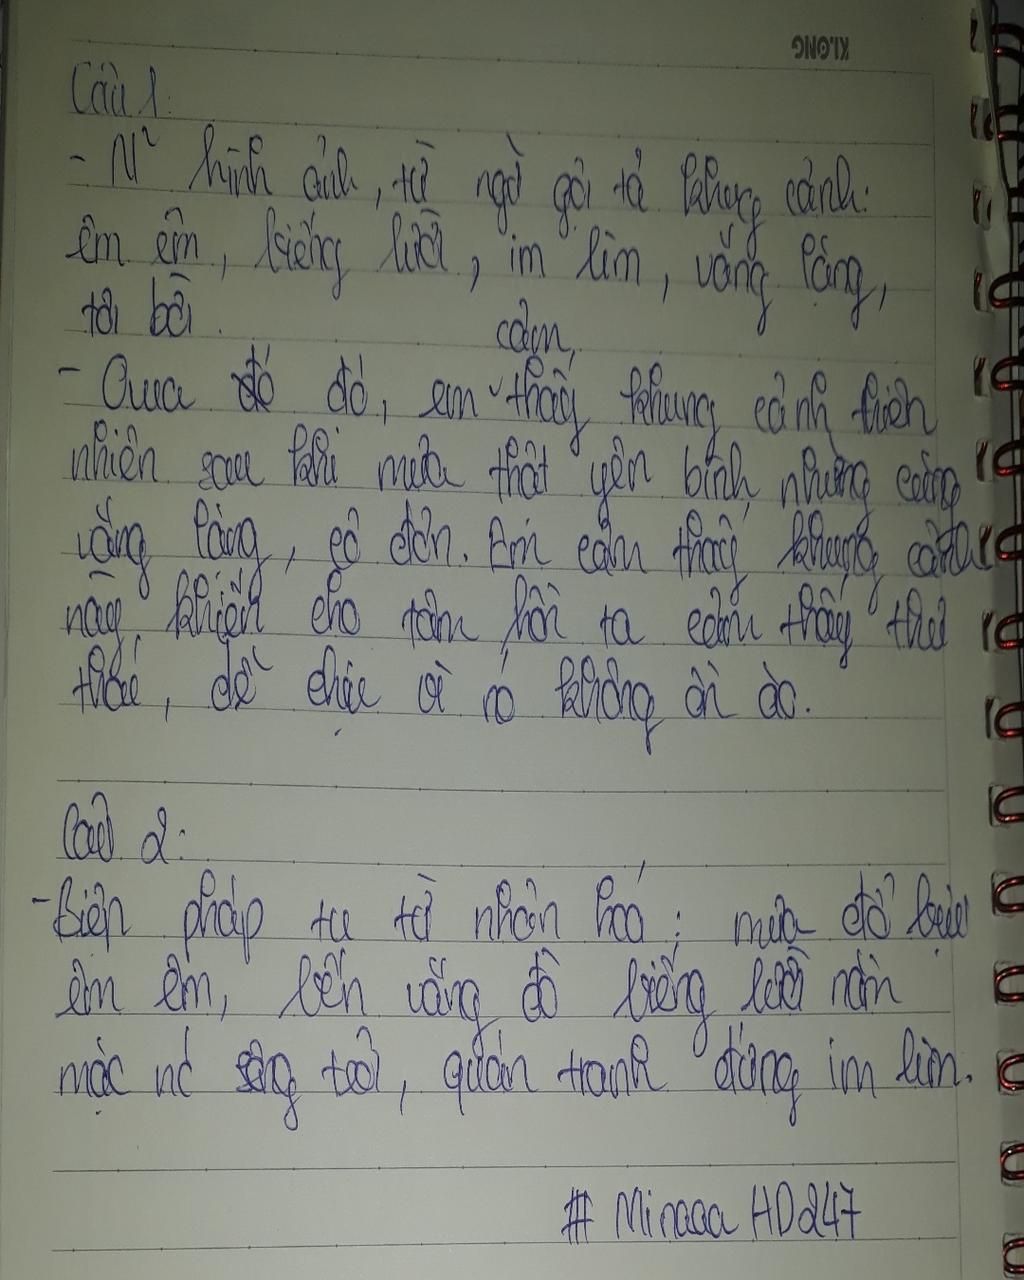 KLONG
Câu 1:
- N² hình ảnh, từ ngữ gợi tả khung cảnh:
êm êm, biếng lười, im lìm, vắng lặng,
tơi bời.
cảm
- Qua đó, em thấy khung cảnh thiên
nhiên sau khi mưa thật yên bình nhưng cũng
vắng lặng, cô đơn. Em cảm thấy khung cảnh
này khiến cho tâm hồn ta cảm thấy thư
thái, dễ chịu vì nó không ồn ào.
Câu 2:
- Biện pháp tu từ nhân hoá: mưa đổ bụi
êm êm, bến vắng đò biếng lười nằm
mặc nc sông trôi, quán tranh đứng im lìm.
# Minaaa HD247